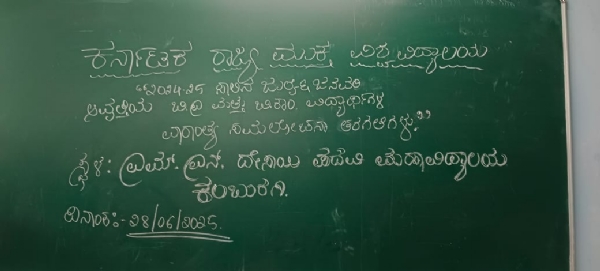 ಕರ್ನಾಟಕ ರಾಜ್ಯ ಮುಕ್ತ ವಿಶ್ವವಿದ್ಯಾಲಯ
"2024-25 ಸಾಲಿನ ಜುಲೈ & ಜನೆವರಿ
ಆವೃತ್ತಿಯ ಬಿಎ ಮತ್ತು ಬಿಕಾಂ. ವಿದ್ಯಾರ್ಥಿಗಳ
ವಾರಾಂತ್ಯ ಸಮಾಲೋಚನಾ ತರಗತಿಗಳು."
ಸ್ಥಳ: ಎಮ್. ಎಸ್. ಪದವಿ ಮಹಾವಿದ್ಯಾಲಯ
ಕಲಬುರಗಿ.
ದಿನಾಂಕ:- 28/06/2025.